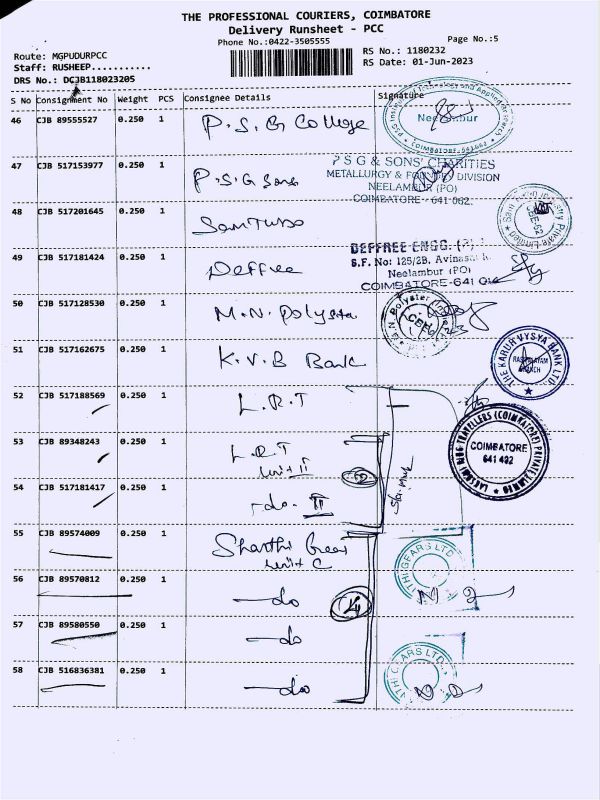 THE PROFESSIONAL COURIERS, COIMBATORE
Delivery Runsheet - PCC
Phone No.:0422-3505555 Page No.:5
Route: MGPUDURPCC RS No.: 1180232
Staff: RUSHEEP........... RS Date: 01-Jun-2023
DRS No.: DCJB118023205
S No Consignment No Weight PCS Consignee Details Signature
46 CJB 89555527 0.250 1 P.S.G College
Neelambur
47 CJB 517153977 0.250 1 P.S.G Sons
P S G & SONS' CHARITIES
METALLURGY & FOUNDRY DIVISION
NEELAMBUR (PO)
COIMBATORE - 641 062.
48 CJB 517201645 0.250 1
49 CJB 517181424 0.250 1 Deffree
DEFFREE ENGG. (P)
S.F. No: 125/2B, Avinashi
Neelambur (PO)
COIMBATORE-641
50 CJB 517128530 0.250 1 M.N. Polyster
51 CJB 517162675 0.250 1 K.V.B Bank
THE KARUR VYSYA BANK LTD
BRANCH
52 CJB 517188569 0.250 1 L.R.T
COIMBATORE
641 402
53 CJB 89348243 0.250 1 L.R.T
unit II
54 CJB 517181417 0.250 1 -do- II
55 CJB 89574009 0.250 1 Sharthi Gears
unit C
THI GEARS LTD
56 CJB 89570812 0.250 1 -do
57 CJB 89580550 0.250 1 -do
58 CJB 516836381 0.250 1 -do
THI GEARS LTD